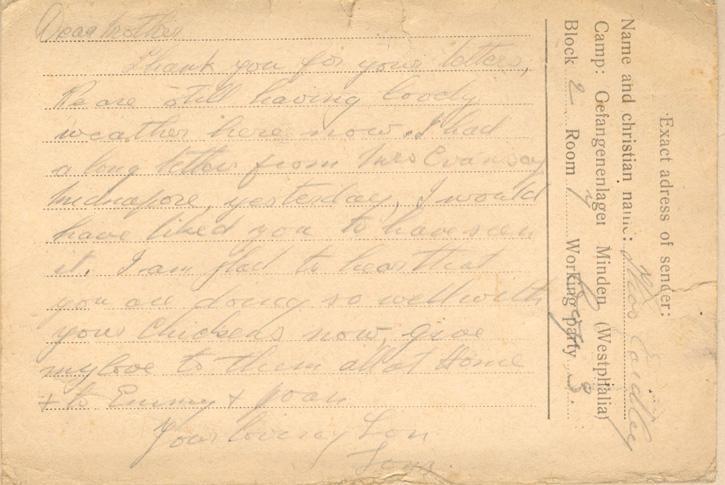 Dear Mother
Thank you for your letters,
We are still having lovely
weather here now. I had
a long letter from Mrs Evans of
Midnapore, yesterday, I would
have liked you to have seen
it. I am glad to hear that
you are doing so well with
your chickens now, give
my love to them all at Home
+ to Emmy + Joan
Your loving Son
Exact adress of sender:
Name and christian name:
Camp: Gefangenenlager Minden (Westphalia)
Block 2 Room Working party